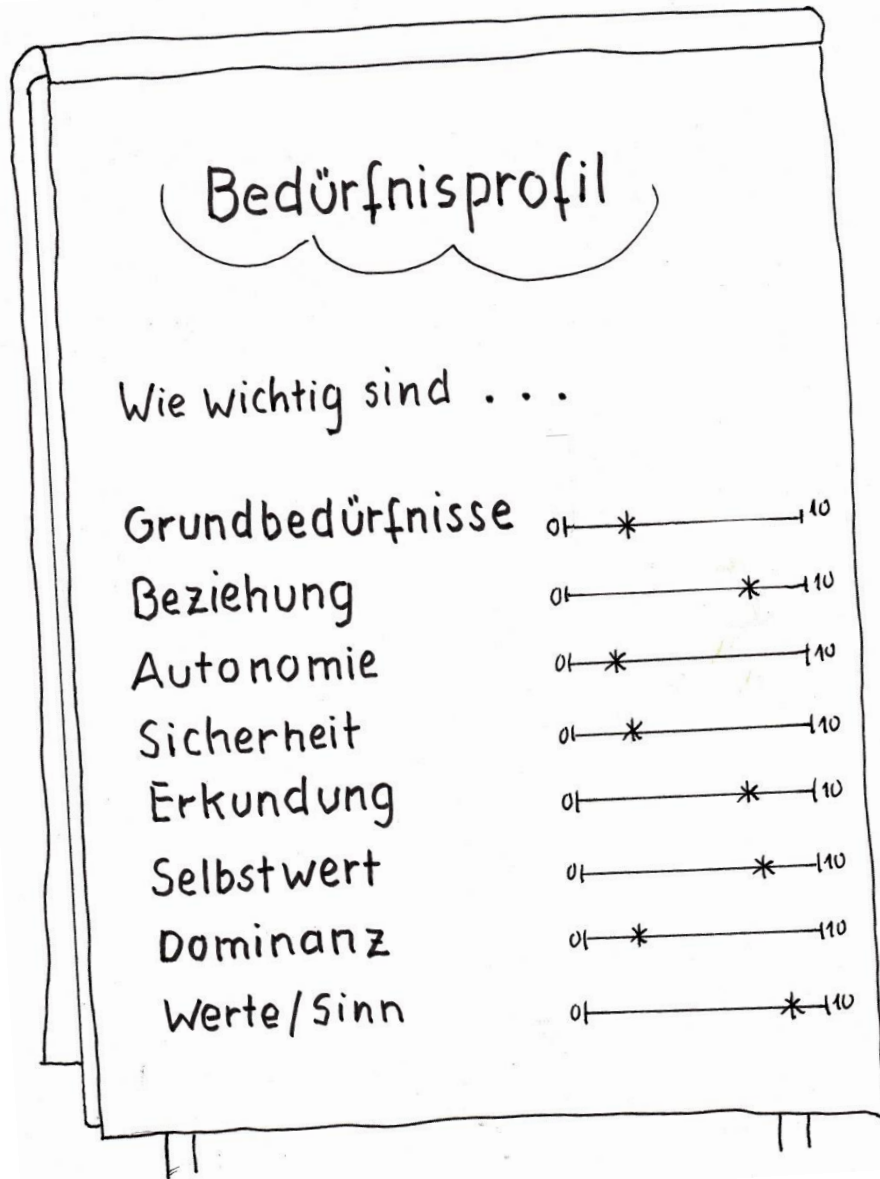 Bedürfnisprofil
Wie wichtig sind . . .
Grundbedürfnisse 0 10
Beziehung 0 10
Autonomie 0 10
Sicherheit 0 10
Erkundung 0 10
Selbstwert 0 10
Dominanz 0 10
Werte/Sinn 0 10